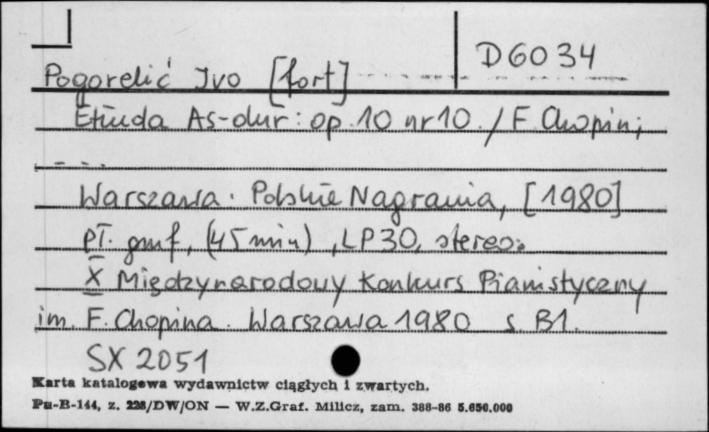 D6034
Pogorelić Ivo [fort]
Etiuda As-dur: op. 10 nr 10. / F. Chopin;
- - -
Warszawa. Polskie Nagrania, [1980]
pł. gmf, (45 min), LP30, stereo.
X Międzynarodowy Konkurs Pianistyczny
im. F. Chopina. Warszawa 1980 s. B1.
SX 2051
Karta katalogowa wydawnictw ciągłych i zwartych.
Pu-B-144, z. 228/DW/ON — W.Z.Graf. Milicz, zam. 388-86 5.650.000